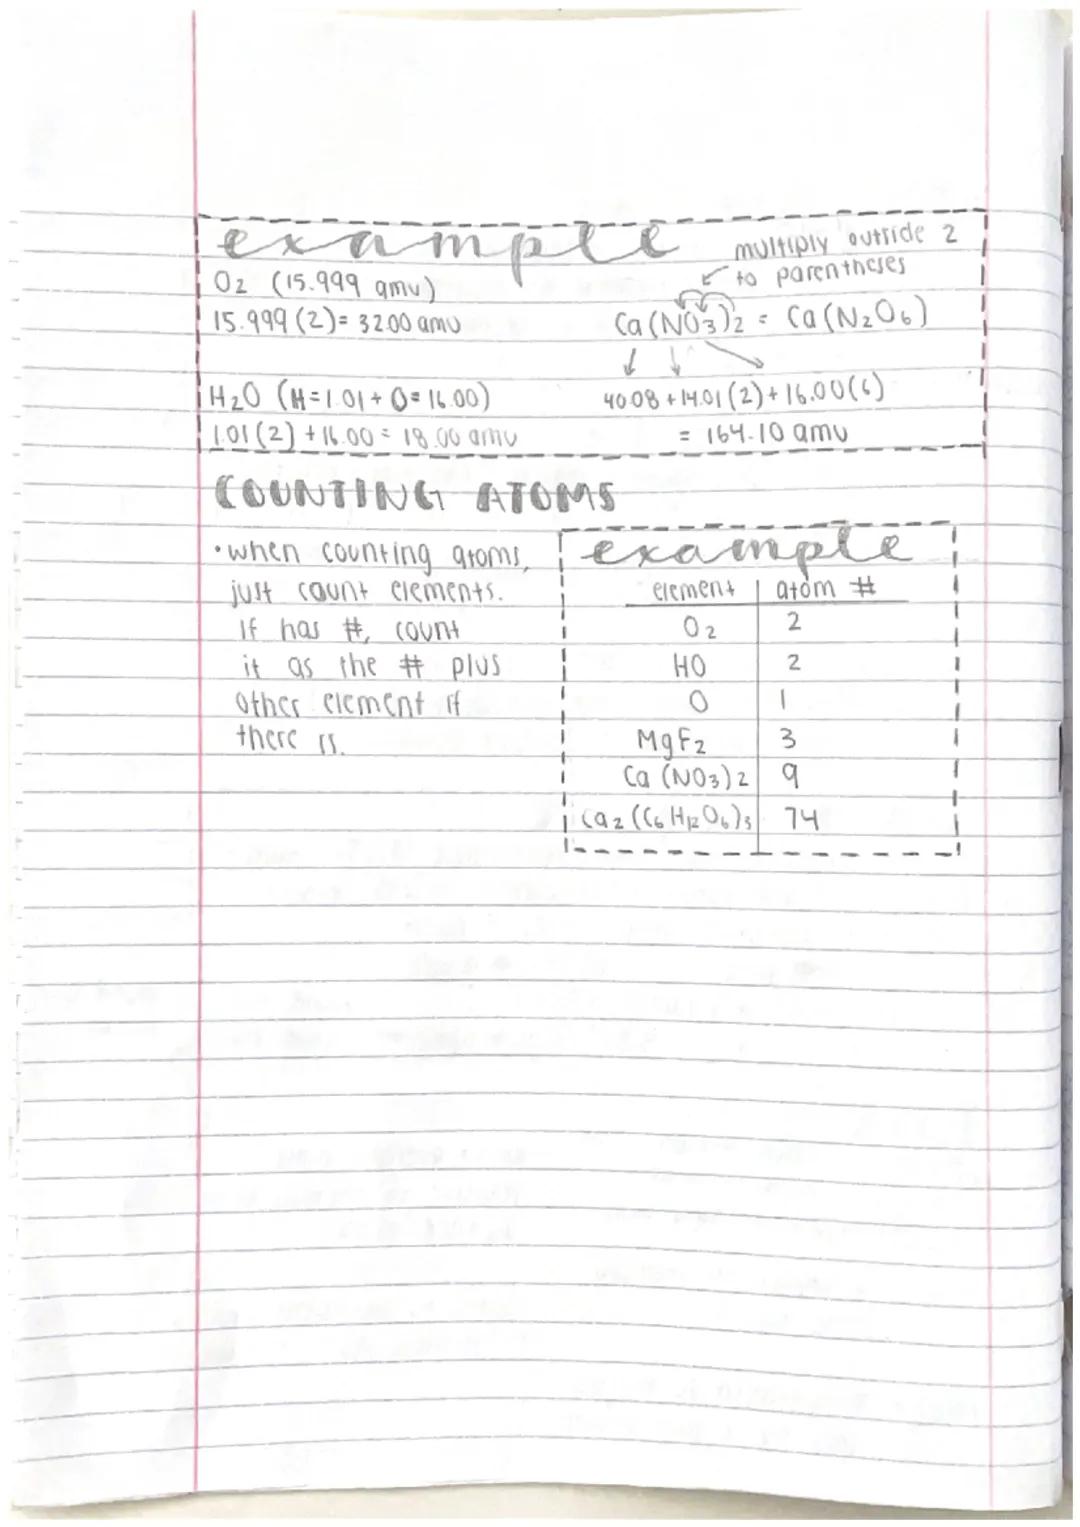 example
O2 (15.999 amu)
15.999 (2) = 32.00 amu
H2O (H=1.01 + O=16.00)
1.01 (2) + 16.00 = 18.00 amu
multiply outside 2
to parentheses
Ca(NO3)2 = Ca(N2O6)
40.08 + 14.01 (2) + 16.00 (6)
= 164.10 amu
COUNTING ATOMS
• when counting atoms,
just count elements.
If has #, count
it as the # plus
other element if
there is.
example
element atom #
O2 2
HO 2
O 1
MgF2 3
Ca (NO3)2 9
Ca2 (C6 H12 O6)3 74